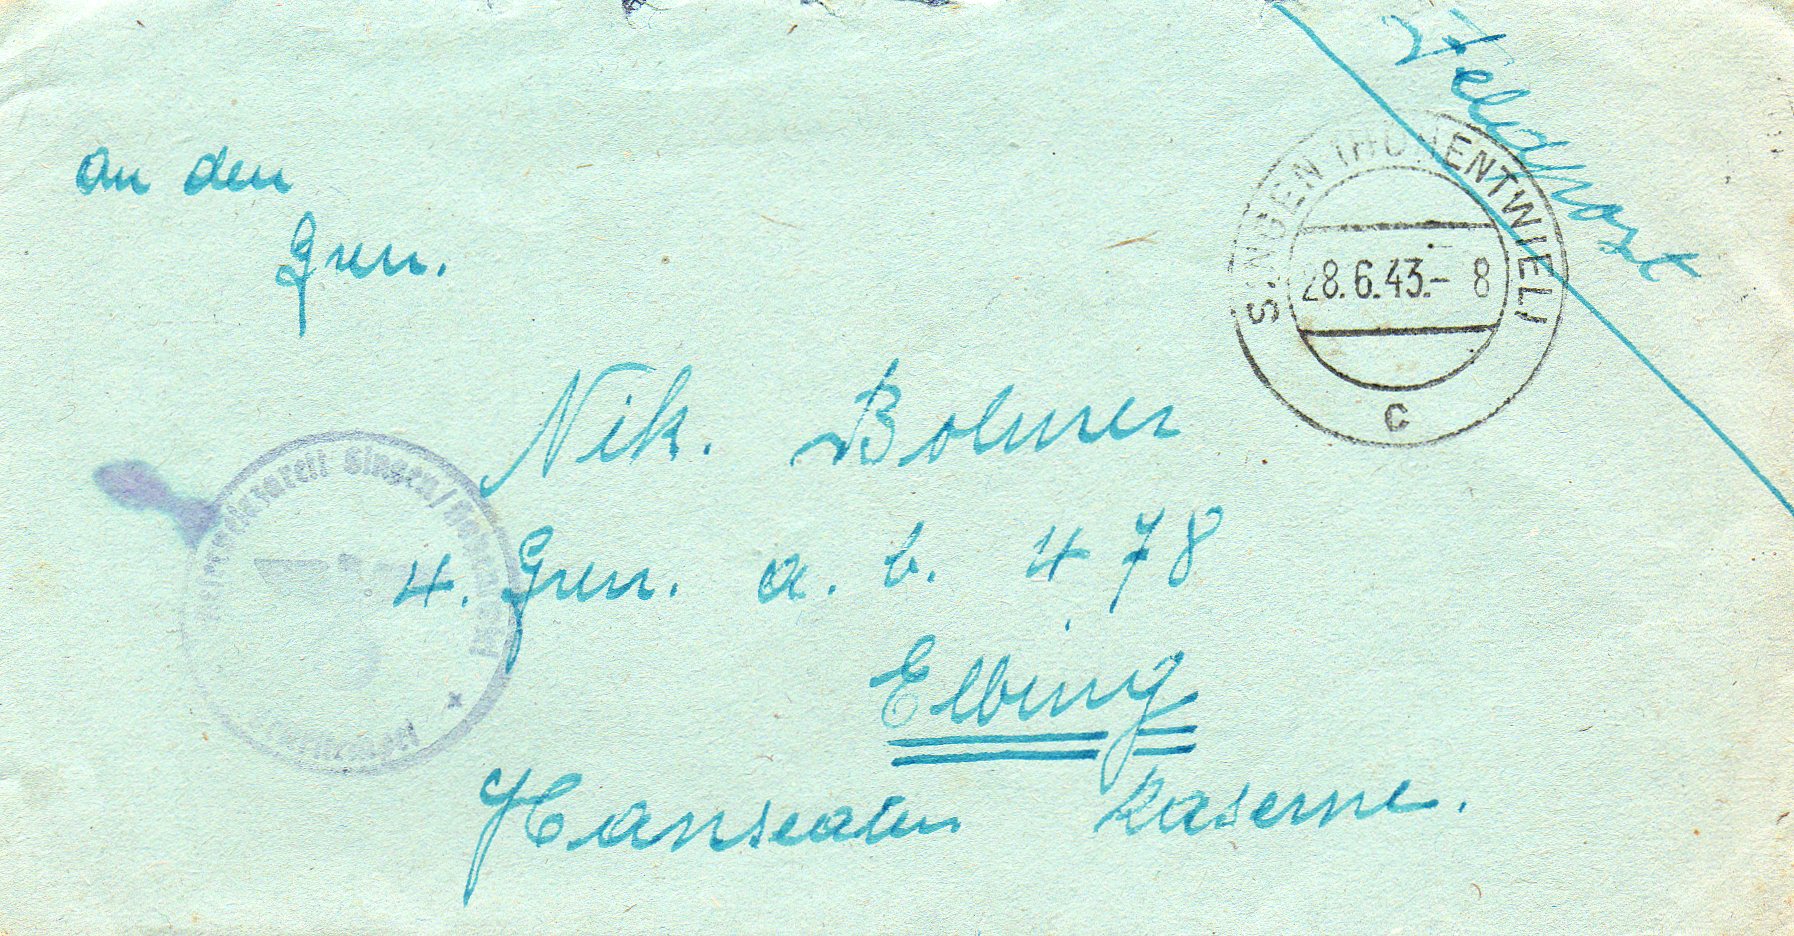 Feldpost
SINGEN (HOHENTWIEL)
28.6.43.- 8
c
An den
Gren.
Nik. Bohner
4. Gren. a. b. 478
Elbing
Hanseaten Kaserne.
Reservelazarett Singen/Hohentwiel